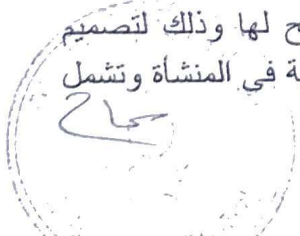 ح لها وذلك لتصميم
ة في المنشأة وتشمل